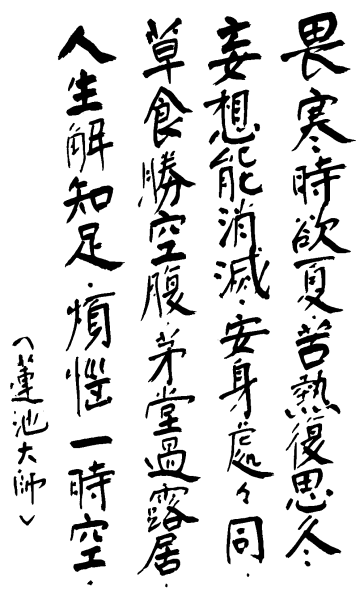 畏寒時欲夏·苦熱復思冬·
妄想能消滅·安身處々同·
草食勝空腹·茅堂過露居·
人生解知足·煩惱一時空·
(蓮池大师)